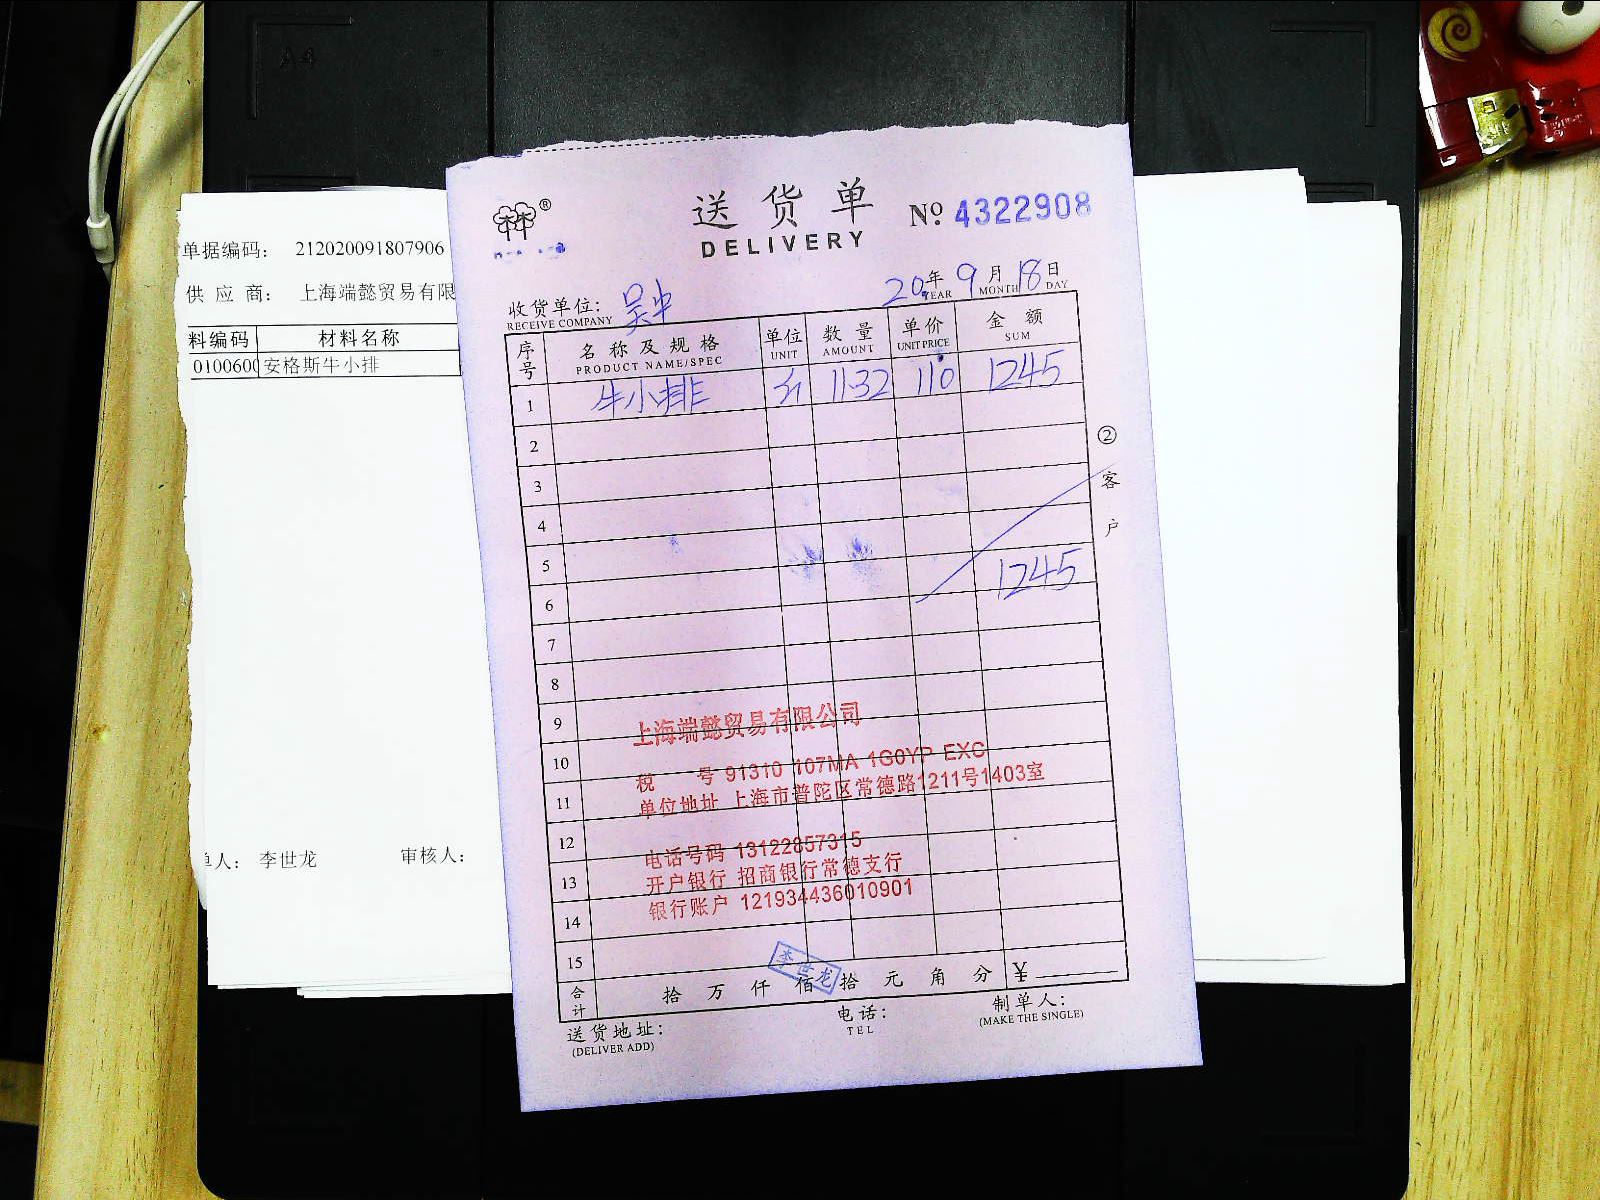 A4
单据编码： 212020091807906
供 应 商： 上海端懿贸易有限
料编码 材料名称
0100600 安格斯牛小排
单人： 李世龙 审核人：
®
送 货 单
DELIVERY
Nº 4322908
收货单位： 吴中
RECEIVE COMPANY
20 年 9 月 18 日
YEAR MONTH DAY
序号 名 称 及 规 格 单位 数 量 单 价 金 额
PRODUCT NAME/SPEC UNIT AMOUNT UNIT PRICE SUM
1 牛小排 斤 11.32 110 1245
2
3
4
5
6 1245
7
8
9
10
11
12
13
14
15
② 客 户
上海端懿贸易有限公司
税 号 91310 107MA 1G0YP EXG
单位地址 上海市普陀区常德路1211号1403室
电话号码 13122857315
开户银行 招商银行常德支行
银行账户 121934436010901
李世龙
合计 拾 万 仟 佰 拾 元 角 分 ¥
送货地址： 电话： 制单人：
(DELIVER ADD) TEL (MAKE THE SINGLE)